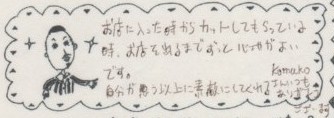 お店に入った時からカットしてもらっている
時、お店を出るまでずっと心地がよい
です。
自分が思う以上に素敵にしてくれる
Komako
さんいつも
ありがとう